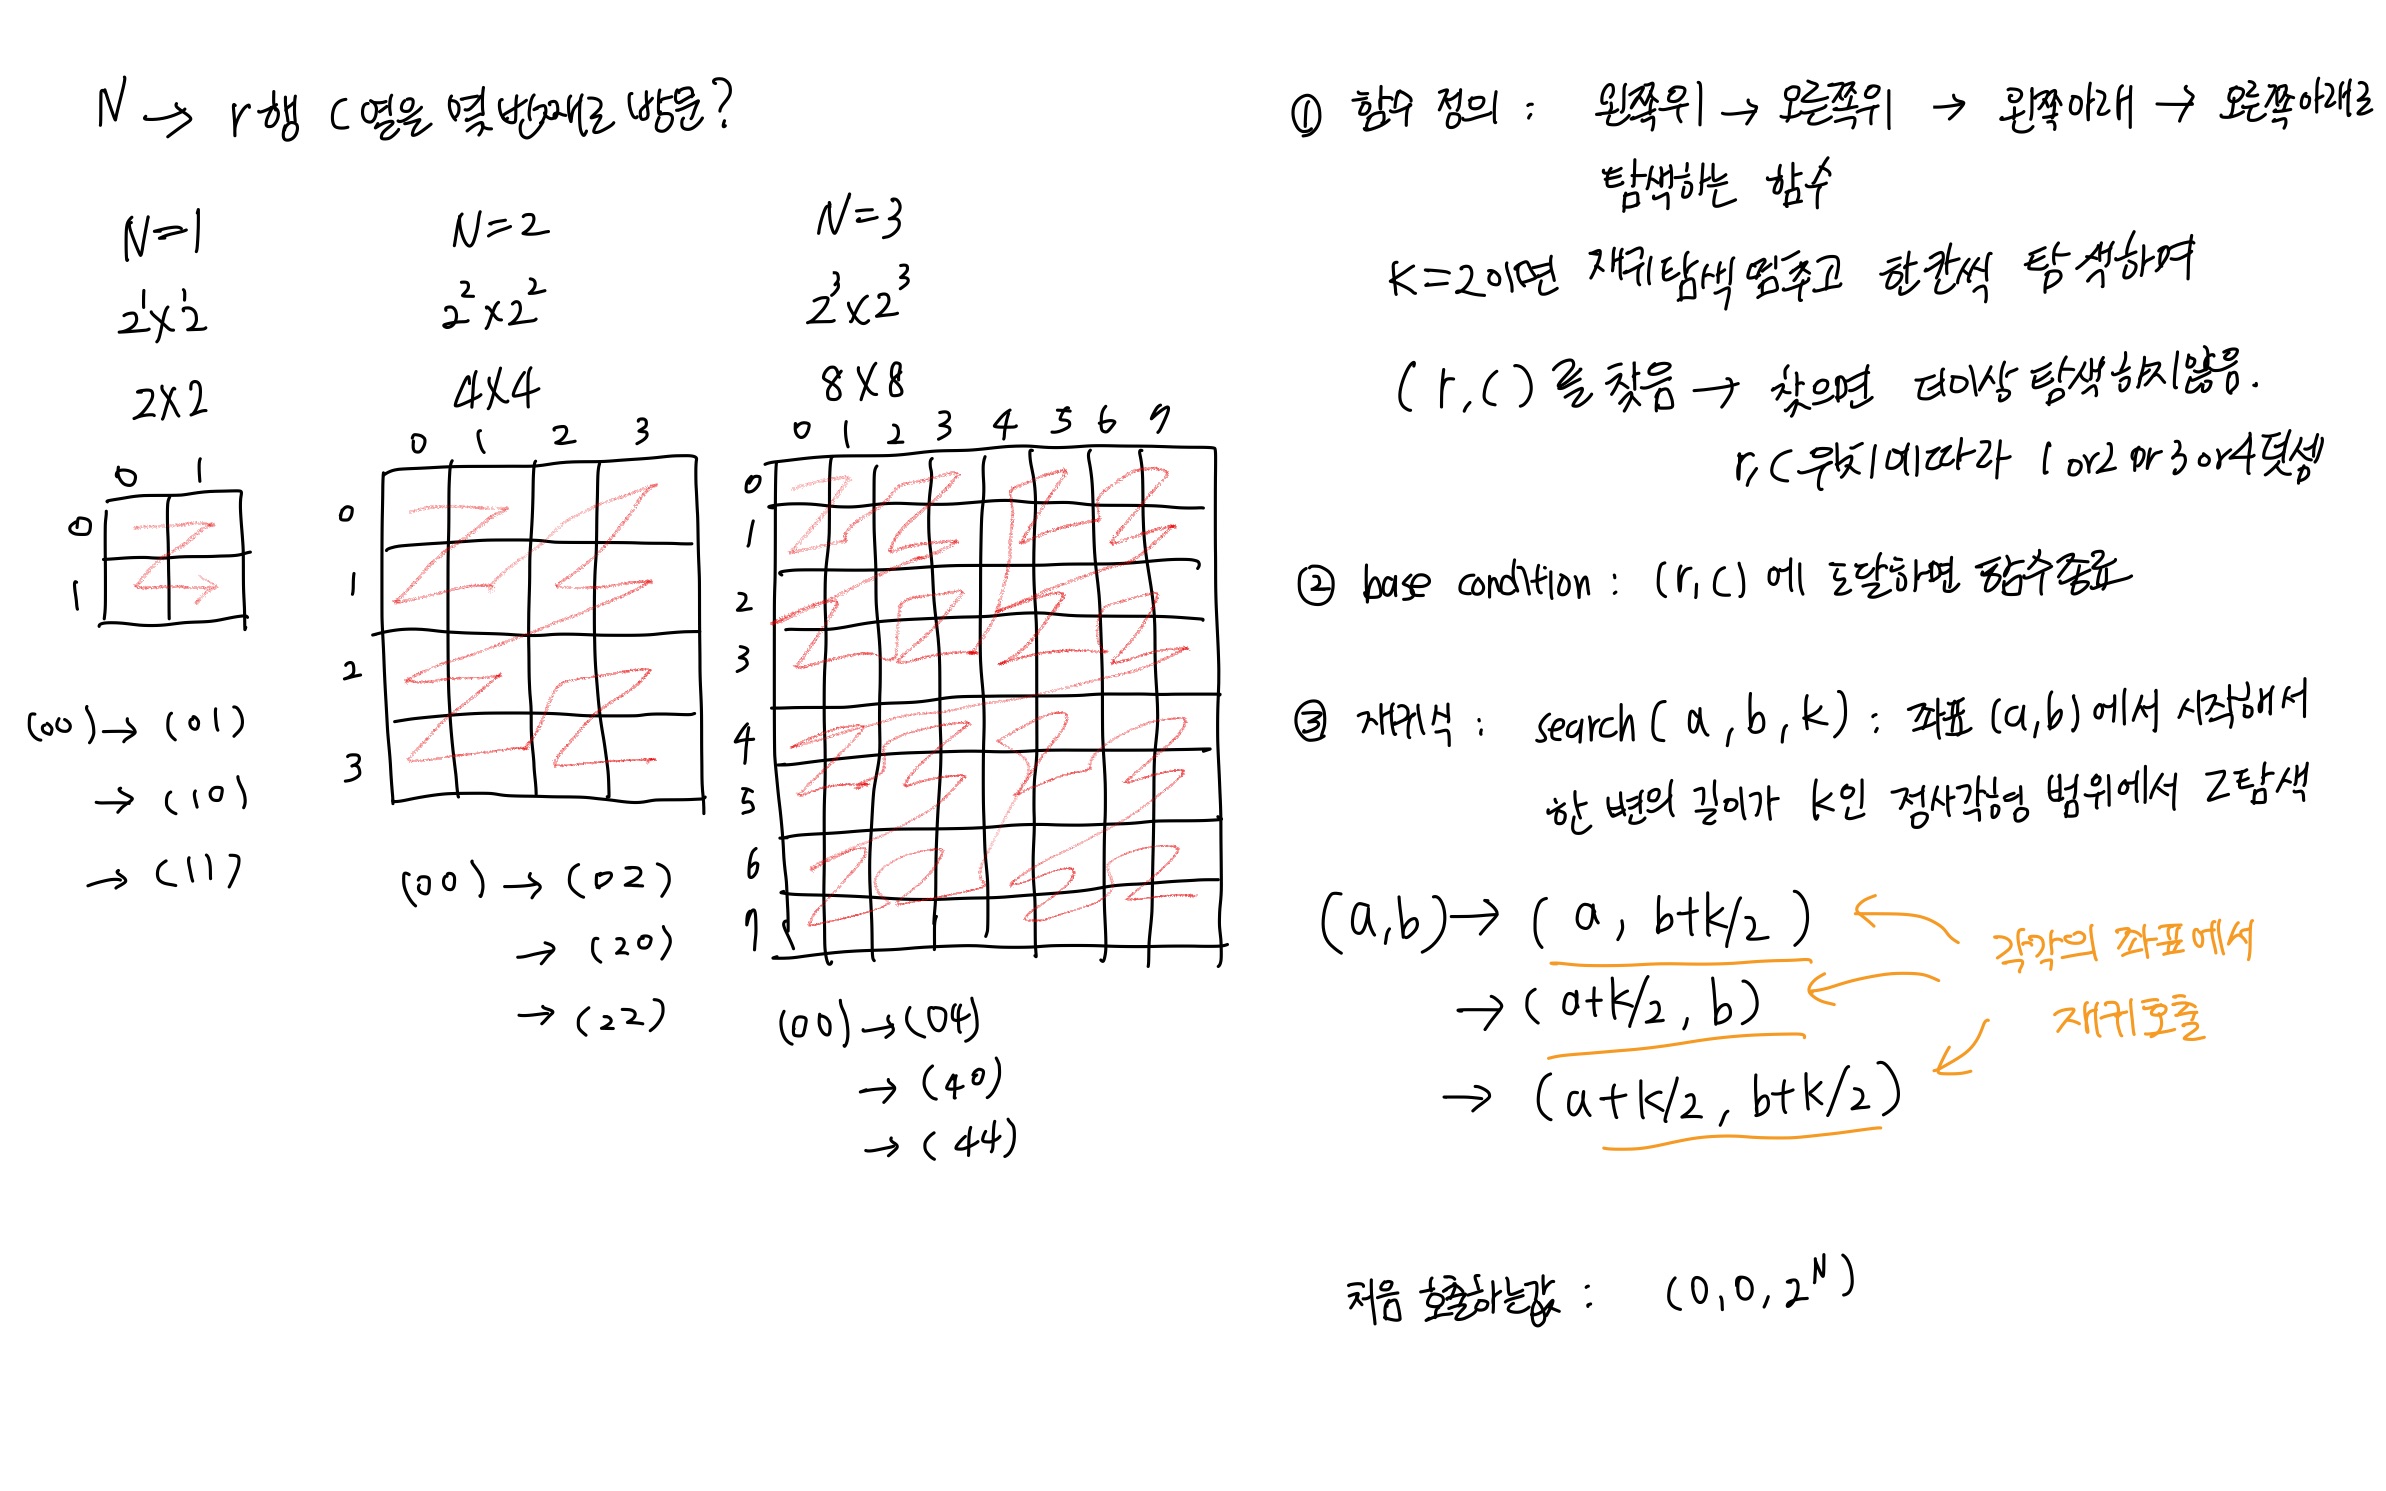 N → r행 c열을 몇 번째로 방문?
N=1
2¹×2¹
2×2
0 1
0
1
(00) → (01)
→ (10)
→ (11)
N=2
2²×2²
4×4
0 1 2 3
0
1
2
3
(00) → (02)
→ (20)
→ (22)
N=3
2³×2³
8×8
0 1 2 3 4 5 6 7
0
1
2
3
4
5
6
7
(00) → (04)
→ (40)
→ (44)
① 함수 정의 : 왼쪽위 → 오른쪽위 → 왼쪽아래 → 오른쪽아래로
탐색하는 함수
K=2이면 재귀탐색 멈추고 한칸씩 탐색하며
(r,c)를 찾음 → 찾으면 더이상 탐색하지않음.
r,c위치에따라 1 or 2 or 3 or 4 덧셈
② base condition : (r,c)에 도달하면 함수종료
③ 재귀식 : search(a,b,k) : 좌표 (a,b)에서 시작해서
한 변의 길이가 k인 정사각형 범위에서 Z탐색
(a,b) → (a, b+k/2)
→ (a+k/2, b)
→ (a+k/2, b+k/2)
각각의 좌표에서
재귀호출
처음 호출하는값 : (0,0,2ᴺ)